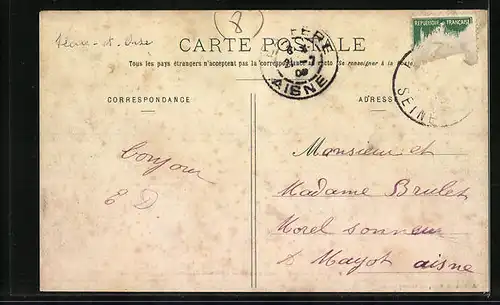 8
Seine-et-Oise
CARTE POSTALE
Tous les pays étrangers n'acceptent pas la correspondance au recto (Se renseigner à la poste)
LA FERE
AISNE
REPUBLIQUE FRANÇAISE
SEINE
CORRESPONDANCE
ADRESSE
bonjour
E D
Monsieur et
Madame Brulet
Morel sonneur
à Mayot aisne